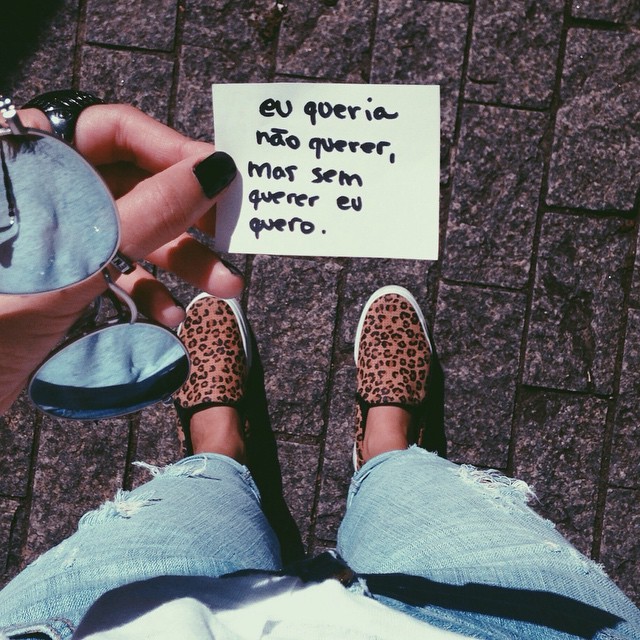 eu queria
não querer,
mas sem
querer eu
quero.